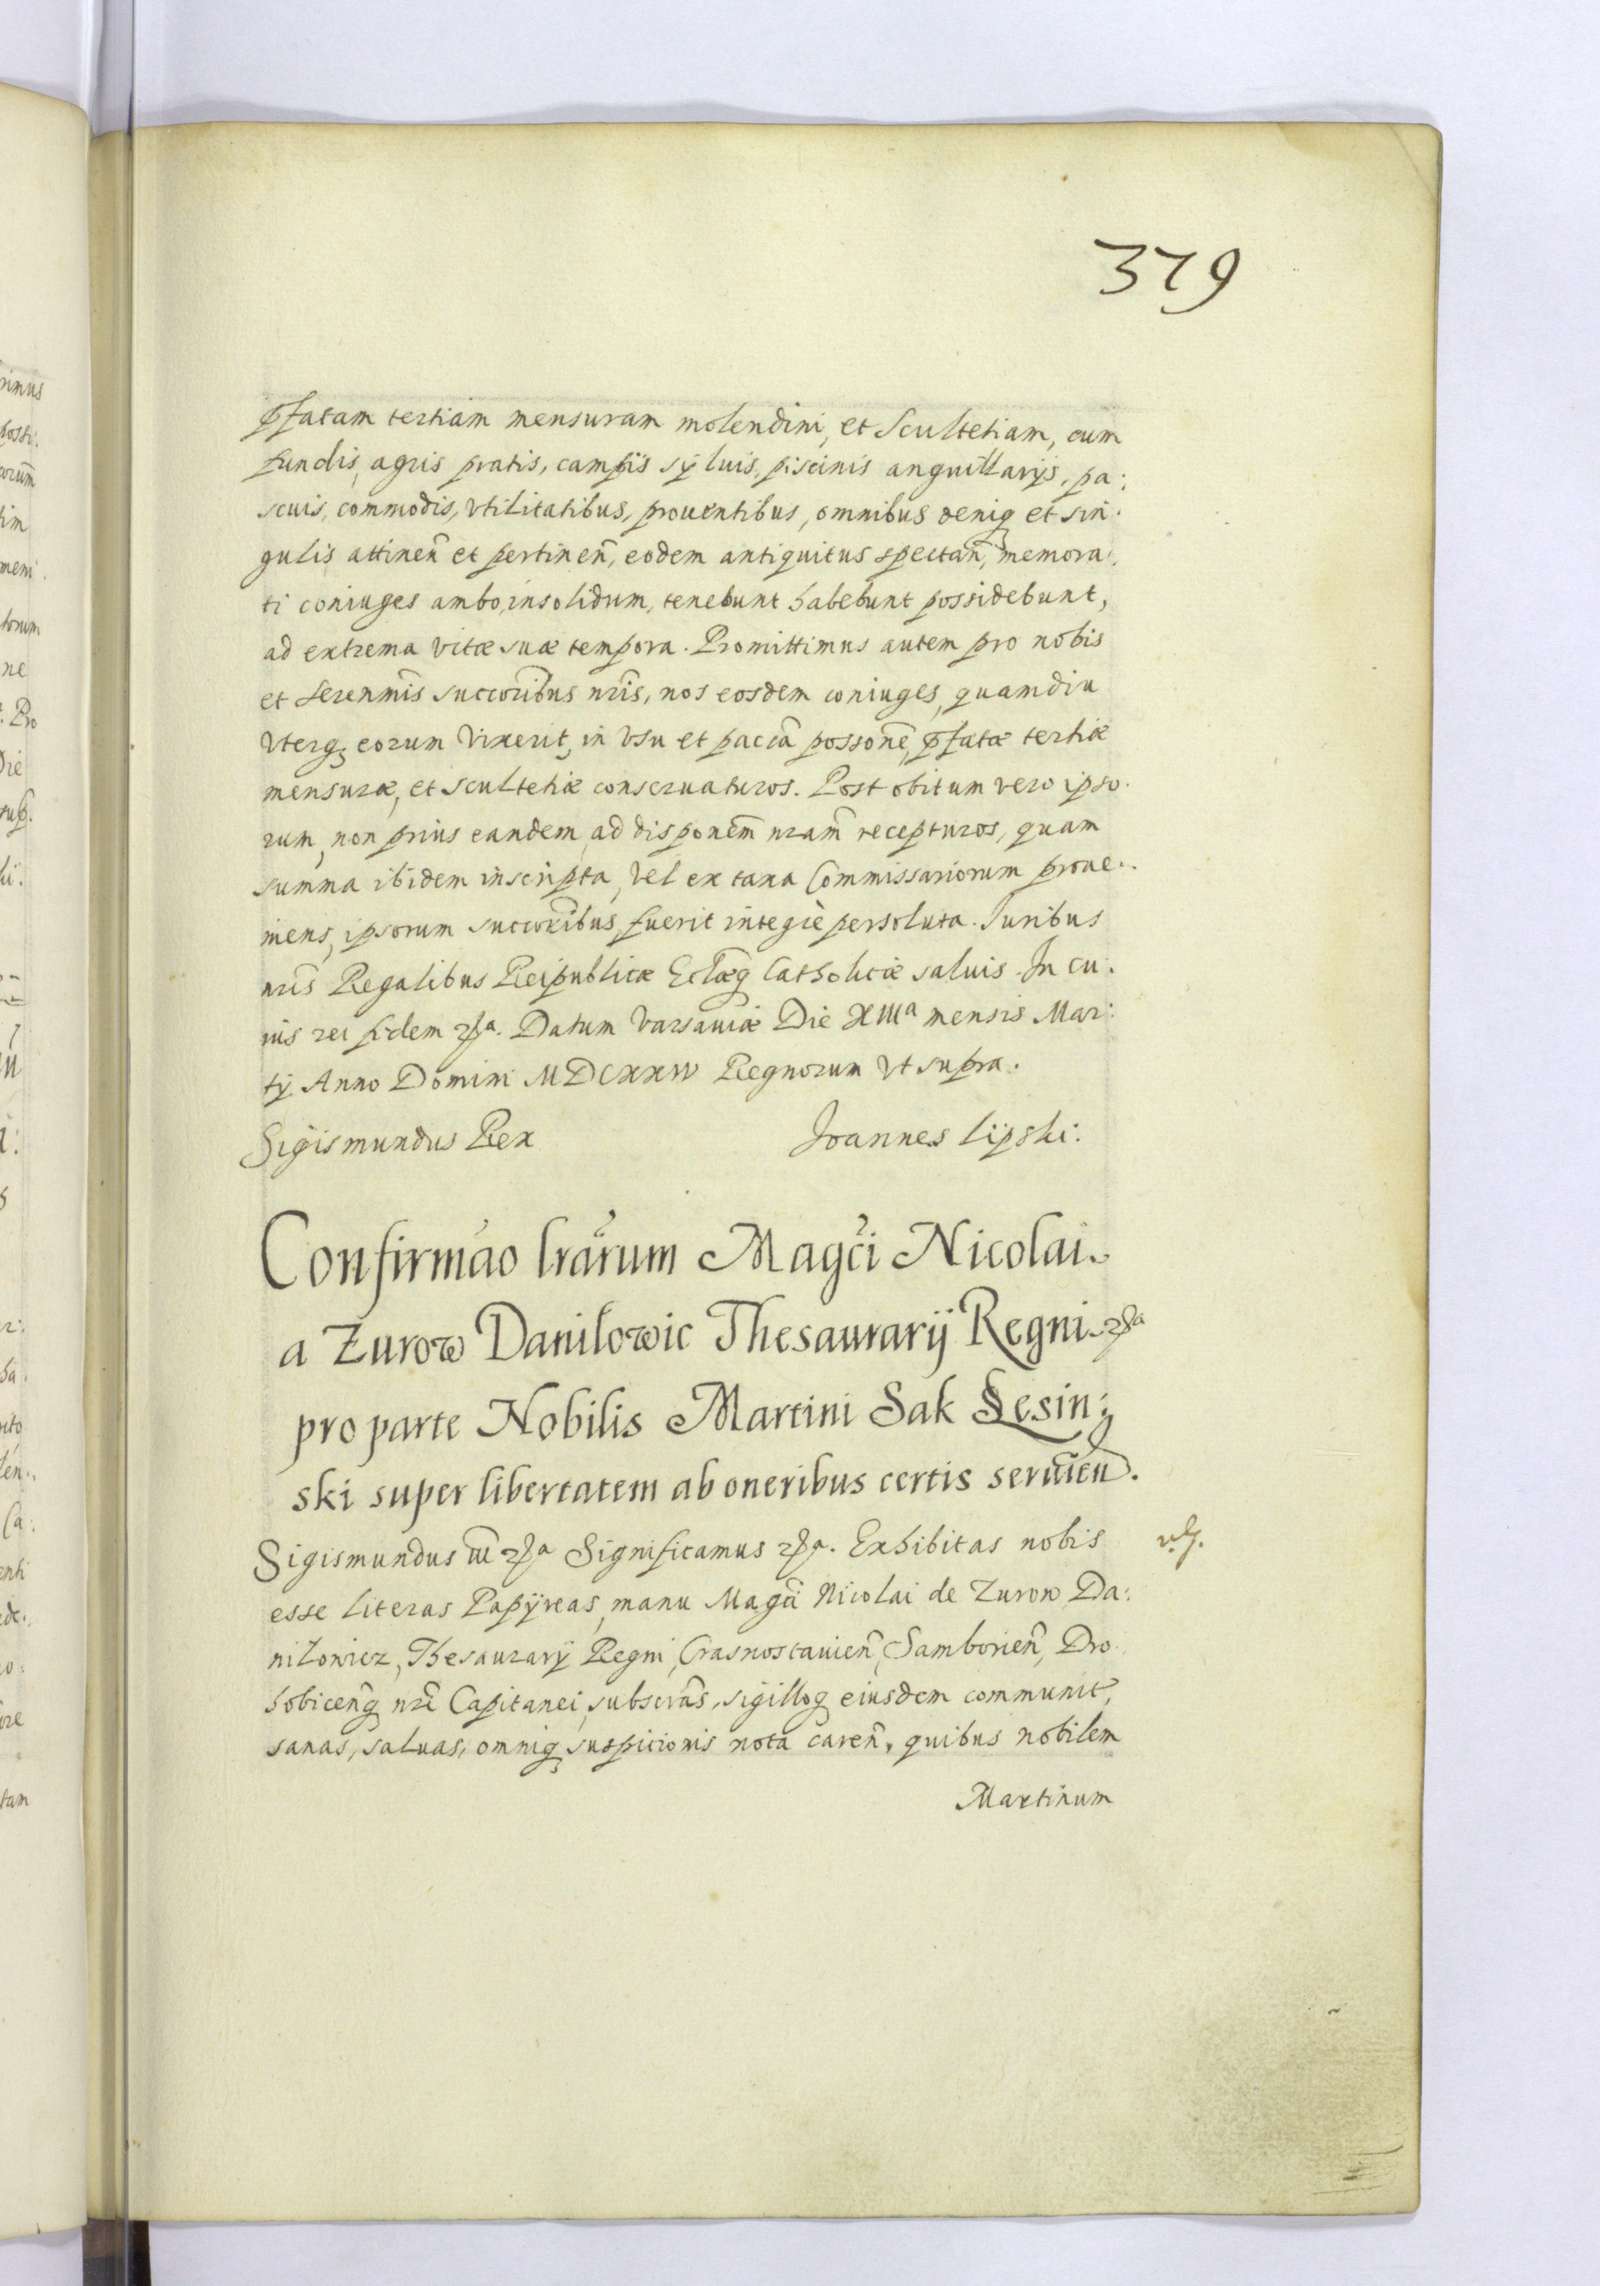 379
p̄fatam tertiam mensuram molendini, et Scultetiam, cum
fundis, agris pratis, campis sÿluis, piscinis anguillarijs, pa:
scuis, commodis, vtilitatibus, prouentibus, omnibus deniq et sin:
gulis attinen̄ et pertinen̄, eodem antiquitus spectan̄, memora:
ti coniuges ambo, insolidum, tenebunt habebunt possidebunt,
ad extrema vitæ suæ tempora. Promittimus autem pro nobis
et Serenmīs succoribus nrīs, nos eosdem coniuges, quamdiu
vterq eorum vixerit, in vsu et pacīa possonē, p̄fatæ tertiæ
mensuræ, et scultetiæ conseruaturos. Post obitum vero ipso:
rum, non prius eandem, ad disponem̄ nram̄ recepturos, quam
summa ibidem inscripta, vel ex taxa Commissariorum proue:
niens, ipsorum succoribus, fuerit integrè persoluta. Iuribus
nrīs Regalibus Reipublicæ Ecl̄æq Catholicæ saluis. In cu:
ius rei fidem. Datum Varsauiæ Die XIIIa mensis Mar:
tÿ Anno Domini MDCXXIV Regnorum vt supra.
Sigismundus Rex Joannes Lipski:
Confirmāo lrārum Magc̄i Nicolai
a Zurow Danilowic Thesaurarij Regni
pro parte Nobilis Martini Sak Lesin:
ski super libertatem ab oneribus certis
Sigismundus III Significamus. Exhibitas nobis
esse literas Papÿreas, manu Magc̄i Nicolai de Zurow Da:
niłowicz, Thesaurarÿ Regni, Crasnostauien̄, Samborien̄, Dro
hobicen̄q nrī Capitanei, subscrās, sigilloq eiusdem communit,
sanas, saluas, omniq suspicionis nota caren̄, quibus nobilem
Martinum